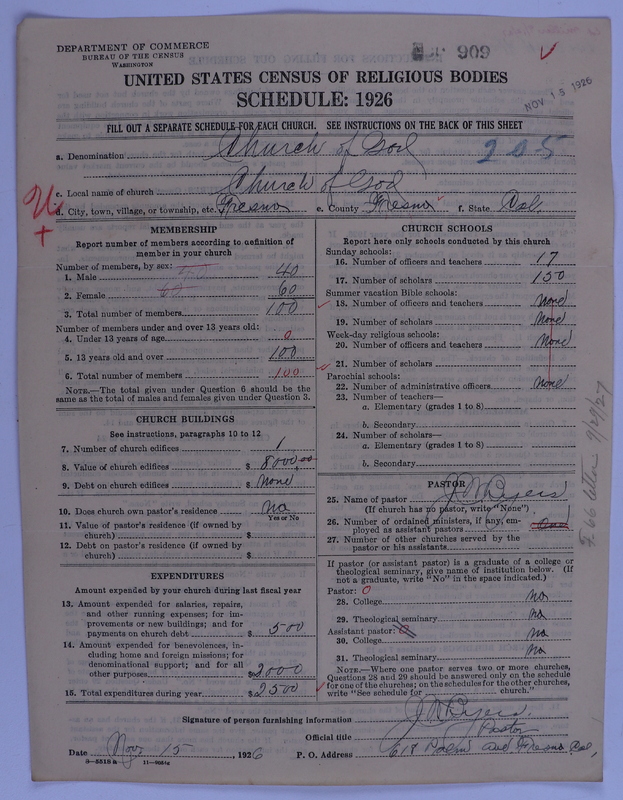 DEPARTMENT OF COMMERCE
BUREAU OF THE CENSUS
WASHINGTON
909
NOV 15 1926
UNITED STATES CENSUS OF RELIGIOUS BODIES
SCHEDULE: 1926
FILL OUT A SEPARATE SCHEDULE FOR EACH CHURCH. SEE INSTRUCTIONS ON THE BACK OF THIS SHEET
a. Denomination Church of God 205
c. Local name of church Church of God
d. City, town, village, or township, etc. Fresno e. County Fresno f. State Cal.
MEMBERSHIP
Report number of members according to definition of
member in your church
Number of members, by sex:
1. Male 40 40
2. Female 60 60
3. Total number of members 100
Number of members under and over 13 years old:
4. Under 13 years of age 0
5. 13 years old and over 100
6. Total number of members 100
NOTE.—The total given under Question 6 should be the
same as the total of males and females given under Question 3.
CHURCH BUILDINGS
See instructions, paragraphs 10 to 12
7. Number of church edifices 1
8. Value of church edifices $ 8000.00
9. Debt on church edifices $ None
10. Does church own pastor's residence No
Yes or No
11. Value of pastor's residence (if owned by
church) $
12. Debt on pastor's residence (if owned by
church) $
EXPENDITURES
Amount expended by your church during last fiscal year
13. Amount expended for salaries, repairs,
and other running expenses; for im-
provements or new buildings; and for
payments on church debt $ 500
14. Amount expended for benevolences, in-
cluding home and foreign missions; for
denominational support; and for all
other purposes $ 2000
15. Total expenditures during year $ 2500
CHURCH SCHOOLS
Report here only schools conducted by this church
Sunday schools:
16. Number of officers and teachers 17
17. Number of scholars 150
Summer vacation Bible schools:
18. Number of officers and teachers None
19. Number of scholars None
Week-day religious schools:
20. Number of officers and teachers None
21. Number of scholars
Parochial schools:
22. Number of administrative officers None
23. Number of teachers—
a. Elementary (grades 1 to 8)
b. Secondary
24. Number of scholars—
a. Elementary (grades 1 to 8)
b. Secondary
PASTOR
25. Name of pastor
(If church has no pastor, write "None")
26. Number of ordained ministers, if any, em-
ployed as assistant pastors
27. Number of other churches served by the
pastor or his assistants
If pastor (or assistant pastor) is a graduate of a college or
theological seminary, give name of institution below. (If
not a graduate, write "No" in the space indicated.)
Pastor: O
28. College no
29. Theological seminary no
Assistant pastor:
30. College no
31. Theological seminary no
NOTE.—Where one pastor serves two or more churches,
Questions 28 and 29 should be answered only on the schedule
for one of the churches; on the schedules for the other churches,
write "See schedule for church."
F. 66 letter 9/29/27
Signature of person furnishing information
Official title Pastor
Date Nov 15, 1926 P. O. Address 618 Palm Ave Fresno Cal,